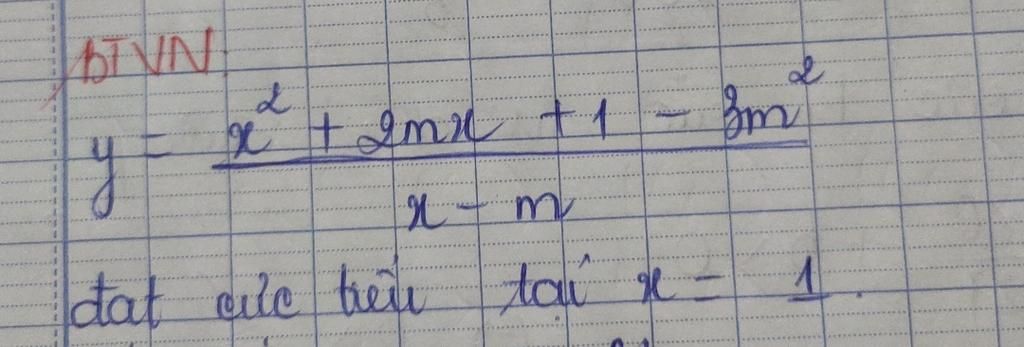 BTVN:
y = x² + 2mx + 1 - 3m²
x - m
đạt cực tiểu tại x = 1.